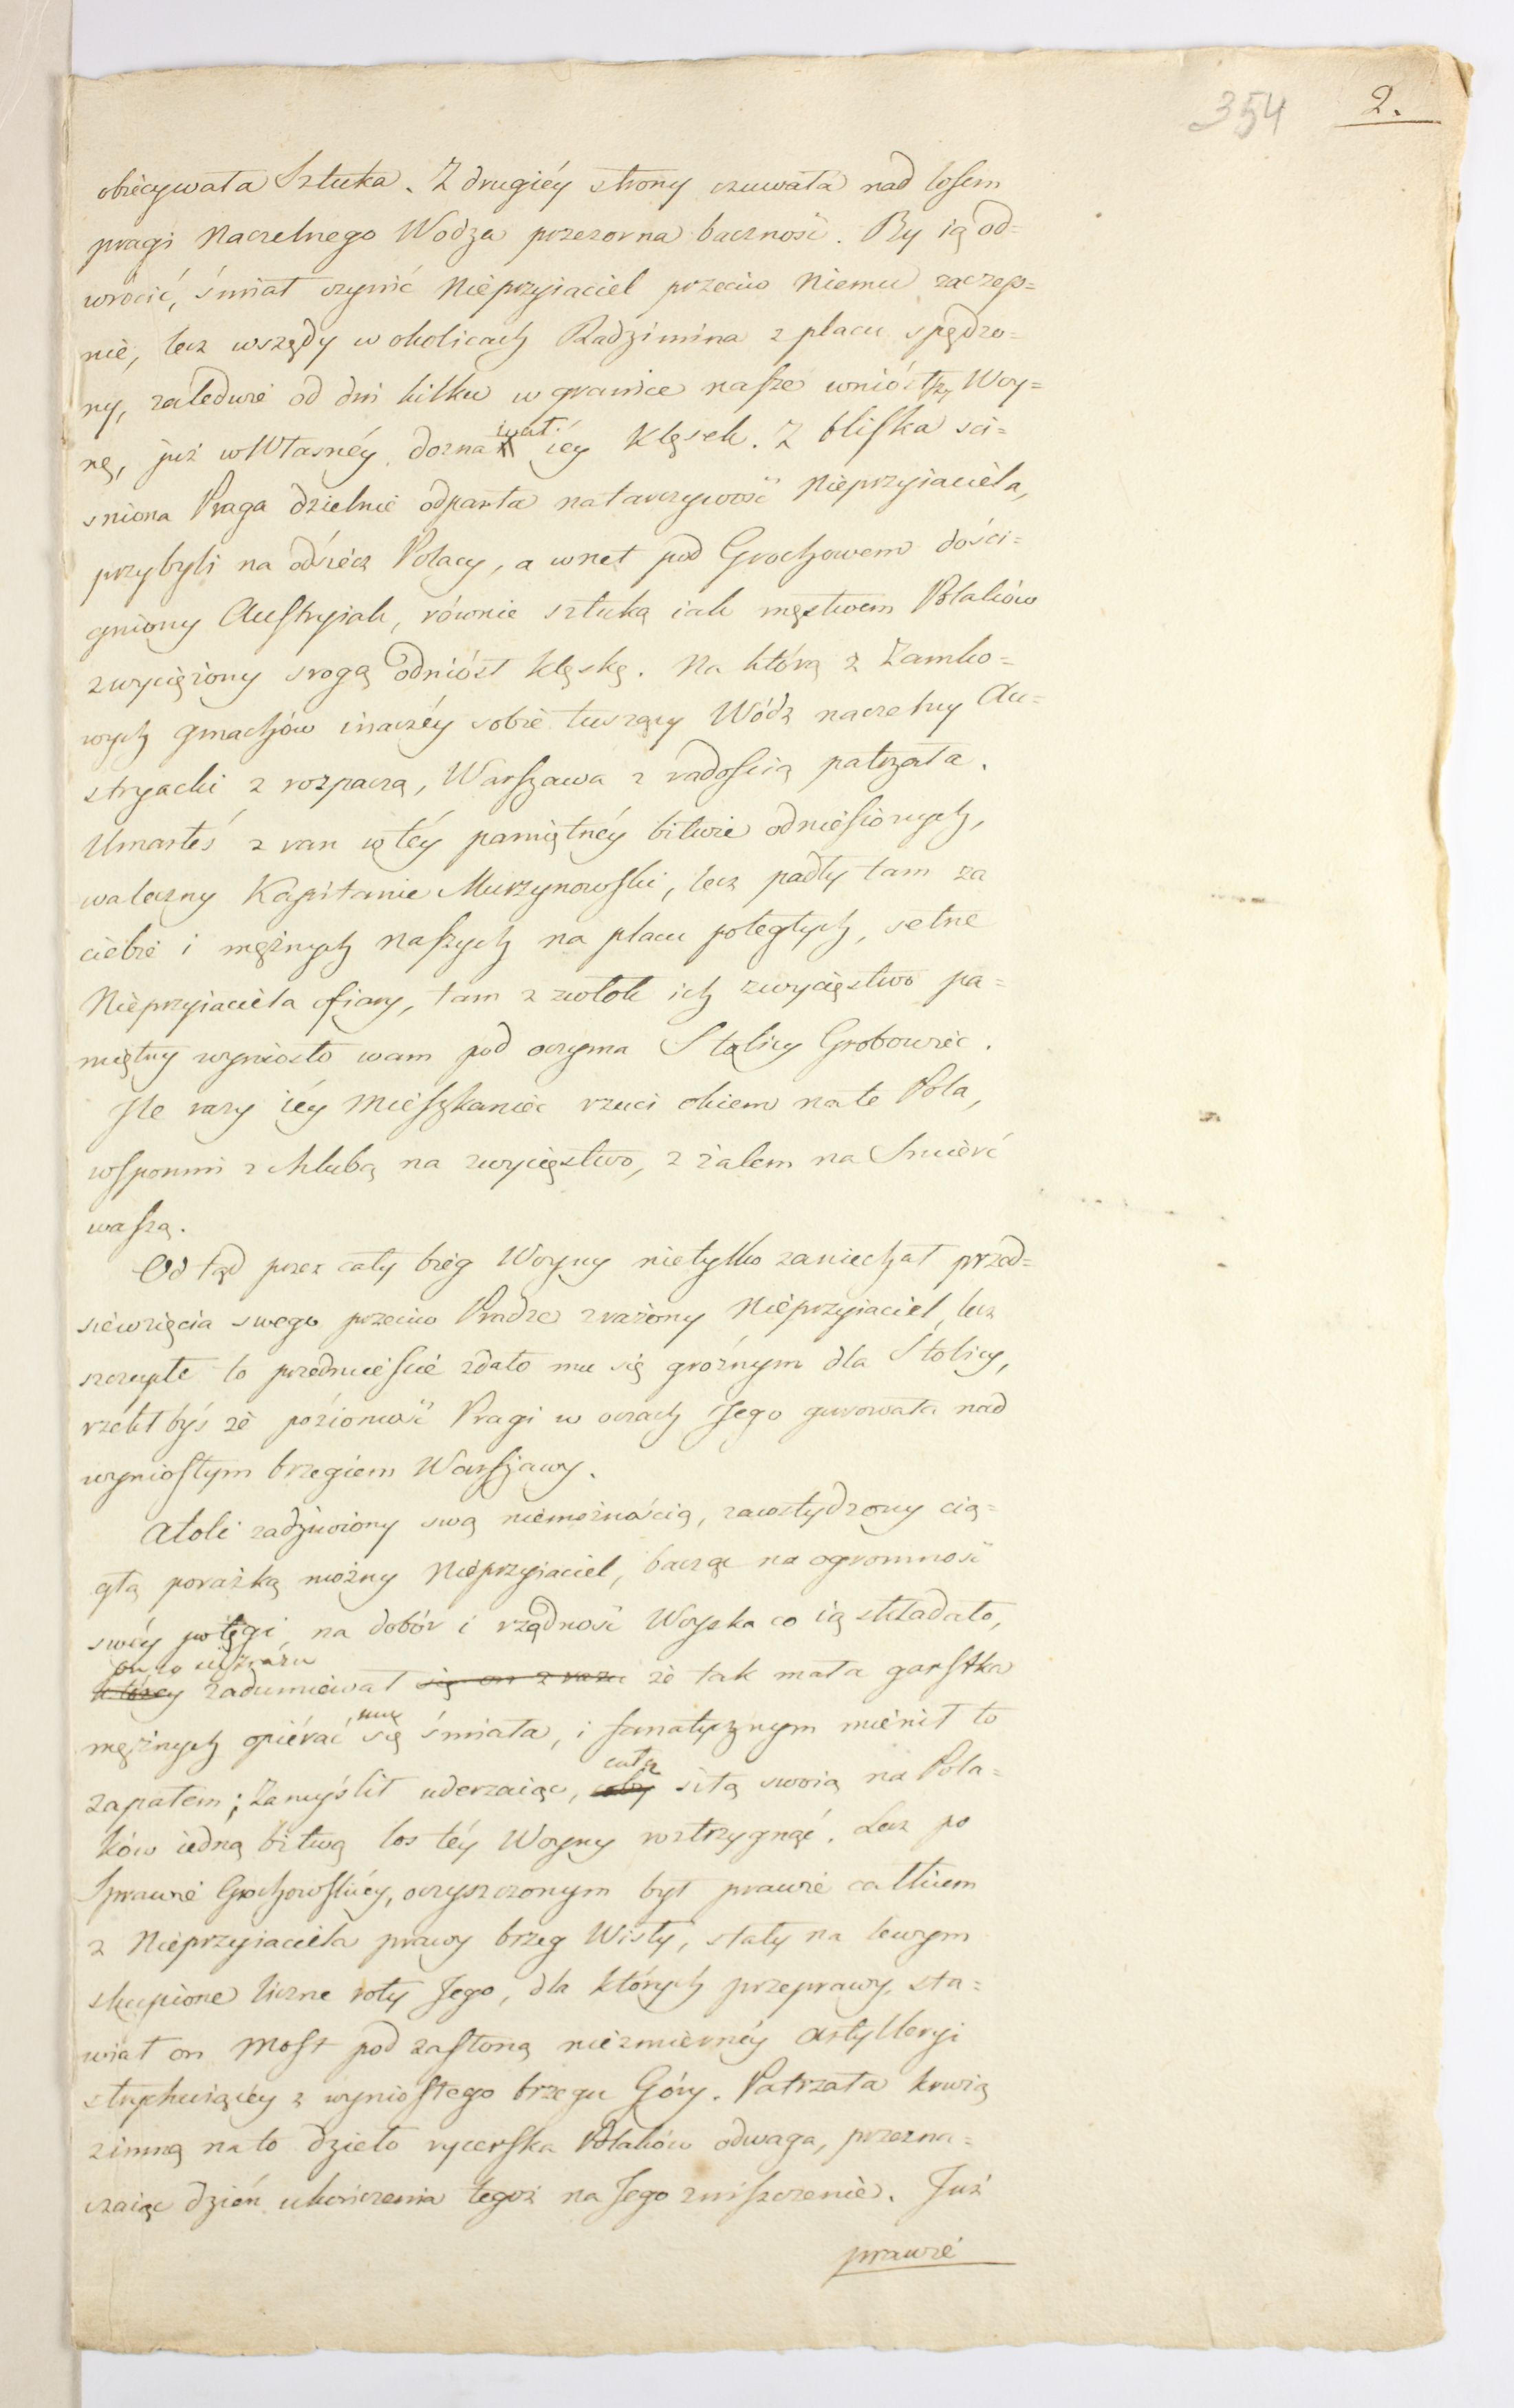 354 2.
obiecywała Sztuka. Z drugiéy strony czuwała nad losem
pragi Naczelnego Wodza przezorna baczność. By ią od=
wrócić, śmiał czynić Nieprzyiaciel przeciw Niemu zaczep=
nie, lecz wszędy w okolicach Radzimina z placu spędzo=
ny, zaledwie od dni kilku w granice nasze wniósłszy Woy=
nę, już w Własnéy doznawał iéy Klęsek. Z bliska sci=
sniona Praga dzielnie odparła natarczywość Nieprzyiaciela,
przybyli na odsiecz Polacy, a wnet pod Grochowem dości=
gniony Austryiak, równie sztuką iak męstwem Polaków
zwyciężony srogą odniósł klęskę. Na którą z Zamko=
wych gmachów inaczéy sobie tuszący Wódz naczelny Au=
stryacki z rozpaczą, Warszawa z radością patrzała.
Umarłeś z ran w téy pamiętnéy bitwie odniesionych,
waleczny Kapitanie Murzynowski, lecz padły tam za
ciebie i mężnych naszych na placu poległych, setne
Nieprzyiaciela ofiary, tam z zwłok ich zwycięstwo pa=
miętny wyniosło wam pod oczyma Stolicy Grobowiec.
Ile razy iéy Mieszkaniec rzuci okiem na te Pola,
wspomni z chlubą na zwycięstwo, z żalem na Smierć
waszą.
Od tąd przez cały bieg Woyny nietylko zaniechał przed=
siewzięcia swego przeciw Pradze zrażony Nieprzyiaciel, lecz
szczupłe to przedmieście zdało mu się groźnym dla Stolicy,
rzekł byś że poziomość Pragi w oczach Jego gurowała nad
wyniosłym brzegiem Warszawy.
Atoli zadziwiony swą niemożnością, zawstydzony cią=
głą porażką możny Nieprzyiaciel, bacząc na ogromność
swéy potęgi, na dobór i rządność Woyska co ią składało,
zadumiewał się on z razu że tak mała garstka
mężnych opiérać mu się śmiała, i fanatycznym mienił to
zapałem; Zamyślił uderzaiąc, całą siłą swoią na Pola=
ków iedną bitwą los téy Woyny rostrzygnąć. Lecz po
Sprawie Grochowskiéy, oczyszczonym był prawie całkiem
z Nieprzyiaciela prawy brzeg Wisły, stały na lewym
skupione liczne roty Jego, dla których przeprawy, sta=
wiał on Most pod zasłoną niezmiernéy Artylleryi
strychuiącéy z wyniosłego brzegu Góry. Patrzała krwią
zimną na to dzieło rycerska Polaków odwaga, przezna=
czaiąc dzień ukończenia tegoż na Jego zniszczenie. Już
prawie